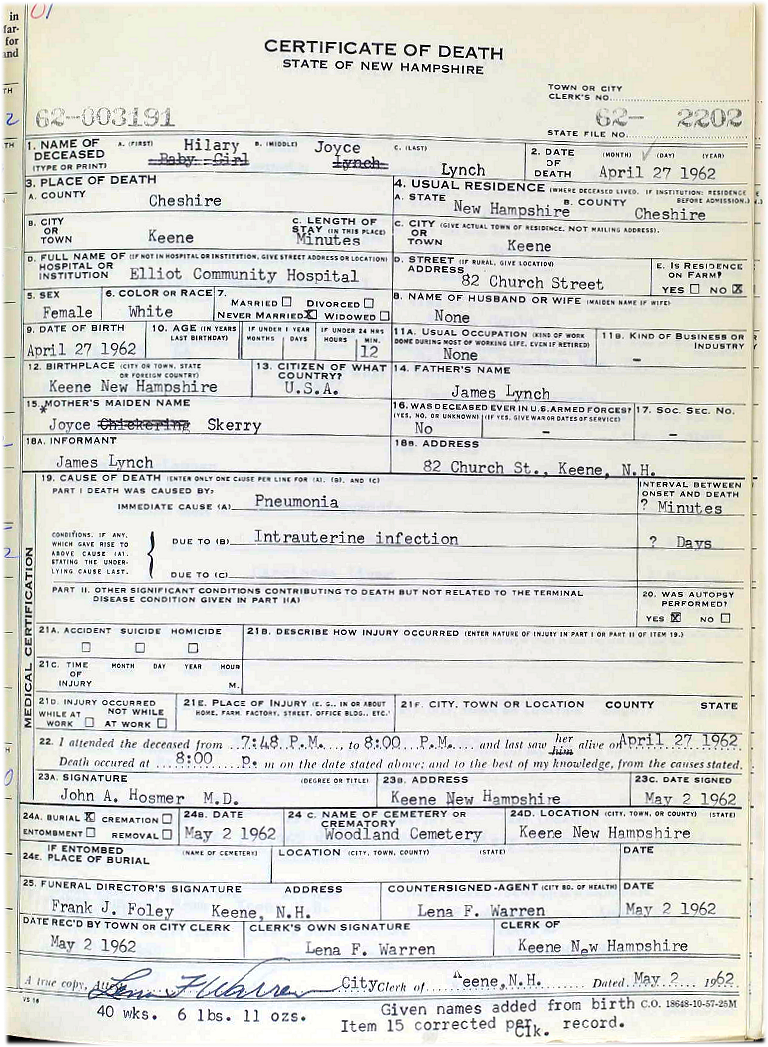 in
lar-
for
and
TH
2
01
CERTIFICATE OF DEATH
STATE OF NEW HAMPSHIRE
TOWN OR CITY
CLERK'S NO.
62-003191
62- 2202
STATE FILE NO.
1. NAME OF DECEASED (TYPE OR PRINT) A. (FIRST) Hilary B. (MIDDLE) Joyce C. (LAST)
Baby Girl Lynch Lynch
2. DATE OF DEATH (MONTH) (DAY) (YEAR)
April 27 1962
3. PLACE OF DEATH
A. COUNTY Cheshire
4. USUAL RESIDENCE (WHERE DECEASED LIVED. IF INSTITUTION: RESIDENCE BEFORE ADMISSION.)
A. STATE New Hampshire B. COUNTY Cheshire
B. CITY OR TOWN Keene
C. LENGTH OF STAY (IN THIS PLACE) Minutes
C. CITY (GIVE ACTUAL TOWN OF RESIDENCE, NOT MAILING ADDRESS).
OR TOWN Keene
D. FULL NAME OF (IF NOT IN HOSPITAL OR INSTITUTION, GIVE STREET ADDRESS OR LOCATION)
HOSPITAL OR INSTITUTION Elliot Community Hospital
D. STREET (IF RURAL, GIVE LOCATION)
ADDRESS 82 Church Street
E. IS RESIDENCE ON FARM?
YES ☐ NO ☒
5. SEX Female
6. COLOR OR RACE White
7. MARRIED ☐ DIVORCED ☐
NEVER MARRIED ☒ WIDOWED ☐
8. NAME OF HUSBAND OR WIFE (MAIDEN NAME IF WIFE)
None
9. DATE OF BIRTH
April 27 1962
10. AGE (IN YEARS LAST BIRTHDAY)
IF UNDER 1 YEAR MONTHS DAYS
IF UNDER 24 HRS HOURS MIN.
12
11A. USUAL OCCUPATION (KIND OF WORK DONE DURING MOST OF WORKING LIFE, EVEN IF RETIRED)
None
11B. KIND OF BUSINESS OR INDUSTRY
-
12. BIRTHPLACE (CITY OR TOWN, STATE OR FOREIGN COUNTRY)
Keene New Hampshire
13. CITIZEN OF WHAT COUNTRY?
U.S.A.
14. FATHER'S NAME
James Lynch
15. MOTHER'S MAIDEN NAME
* Joyce Chickering Skerry
16. WAS DECEASED EVER IN U.S. ARMED FORCES?
(YES, NO, OR UNKNOWN) (IF YES, GIVE WAR OR DATES OF SERVICE)
No -
17. SOC. SEC. NO.
-
18A. INFORMANT
James Lynch
18B. ADDRESS
82 Church St., Keene, N.H.
MEDICAL CERTIFICATION
19. CAUSE OF DEATH (ENTER ONLY ONE CAUSE PER LINE FOR (A), (B), AND (C)
PART I DEATH WAS CAUSED BY:
INTERVAL BETWEEN ONSET AND DEATH
IMMEDIATE CAUSE (A) Pneumonia ? Minutes
CONDITIONS, IF ANY, WHICH GAVE RISE TO ABOVE CAUSE (A). STATING THE UNDERLYING CAUSE LAST.
DUE TO (B) Intrauterine infection ? Days
DUE TO (C)
PART II. OTHER SIGNIFICANT CONDITIONS CONTRIBUTING TO DEATH BUT NOT RELATED TO THE TERMINAL
DISEASE CONDITION GIVEN IN PART I(A)
20. WAS AUTOPSY PERFORMED?
YES ☒ NO ☐
21A. ACCIDENT SUICIDE HOMICIDE
☐ ☐ ☐
21B. DESCRIBE HOW INJURY OCCURRED (ENTER NATURE OF INJURY IN PART I OR PART II OF ITEM 19.)
21C. TIME OF INJURY MONTH DAY YEAR HOUR
M.
21D. INJURY OCCURRED
WHILE AT WORK ☐ NOT WHILE AT WORK ☐
21E. PLACE OF INJURY (E. G., IN OR ABOUT HOME, FARM, FACTORY, STREET, OFFICE BLDG., ETC.)
21F. CITY, TOWN OR LOCATION COUNTY STATE
22. I attended the deceased from 7:48 P.M., to 8:00 P.M. and last saw her him alive on April 27 1962
Death occured at 8:00 p. m on the date stated above; and to the best of my knowledge, from the causes stated.
23A. SIGNATURE (DEGREE OR TITLE)
John A. Hosmer M.D.
23B. ADDRESS
Keene New Hampshire
23C. DATE SIGNED
May 2 1962
24A. BURIAL ☒ CREMATION ☐
ENTOMBMENT ☐ REMOVAL ☐
24B. DATE
May 2 1962
24C. NAME OF CEMETERY OR CREMATORY
Woodland Cemetery
24D. LOCATION (CITY, TOWN, OR COUNTY) (STATE)
Keene New Hampshire
IF ENTOMBED
24E. PLACE OF BURIAL (NAME OF CEMETERY)
LOCATION (CITY, TOWN, COUNTY) (STATE)
DATE
25. FUNERAL DIRECTOR'S SIGNATURE ADDRESS
Frank J. Foley Keene, N.H.
COUNTERSIGNED-AGENT (CITY BD. OF HEALTH)
Lena F. Warren
DATE
May 2 1962
DATE REC'D BY TOWN OR CITY CLERK
May 2 1962
CLERK'S OWN SIGNATURE
Lena F. Warren
CLERK OF
Keene New Hampshire
A true copy, Attest: Lena F Warren City Clerk of Keene, N.H. Dated May 2 1962
VS 16
40 wks. 6 lbs. 11 ozs.
Given names added from birth C.O. 18648-10-57-25M
Item 15 corrected per Clk. record.